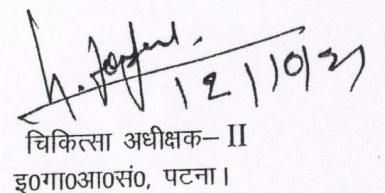 12/10/21
चिकित्सा अधीक्षक– II
इ०गा०आ०सं०, पटना।